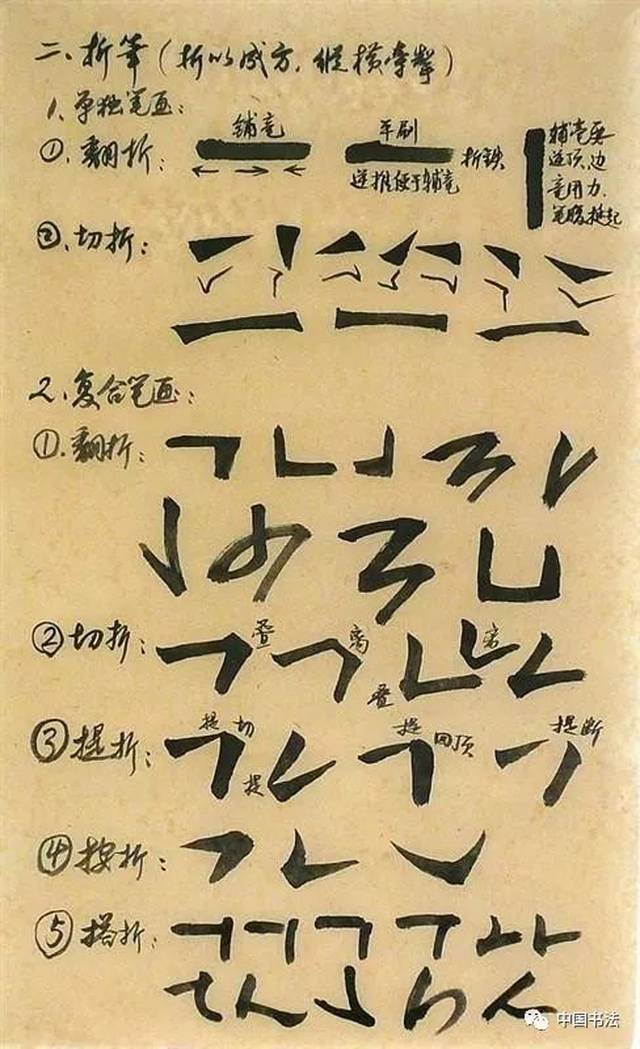 二、折笔(折以成方,纵横牵掣)
1、单独笔画:
①、翻折:
铺毫
平刷
逆推便于铺毫
折铁
辅毫要
逆顶、边
毫用力、
笔腹挺起
②、切折:
2、复合笔画:
①、翻折:
②切折:
叠
离
叠
离
③提折:
提 切
提
提
回顶
提断
④按折:
⑤搭折:
中国书法